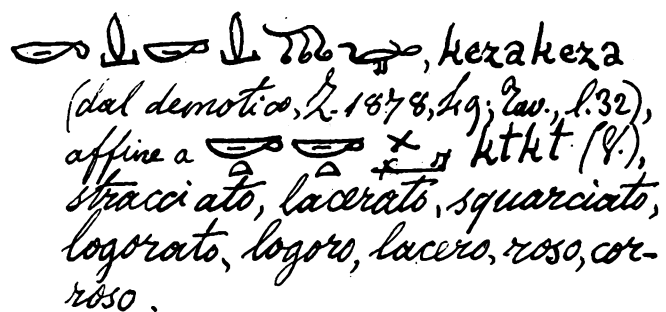 , kezakeza
(dal demotico, Z. 1878, 49; Tav., l. 32),
affine a ktkt (V.),
stracciato, lacerato, squarciato,
logorato, logoro, lacero, roso, cor-
roso.